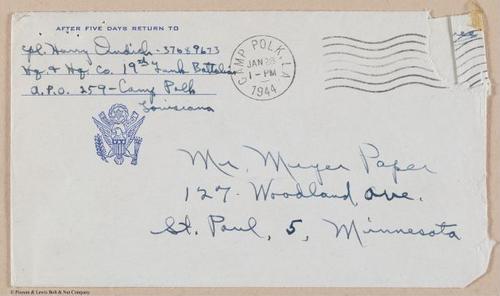 AFTER FIVE DAYS RETURN TO
Cpl. Harry Ondich - 37089673
Hq. & Hq. Co. 19th Tank Battalion
A.P.O. 259 - Camp Polk
Louisiana
CAMP POLK, LA
JAN 28
1 - PM
1944
Mr. Meyer Paper
127 - Woodland Ave.
St. Paul, 5, Minnesota
© Pioneer & Lewis Bolt & Nut Company